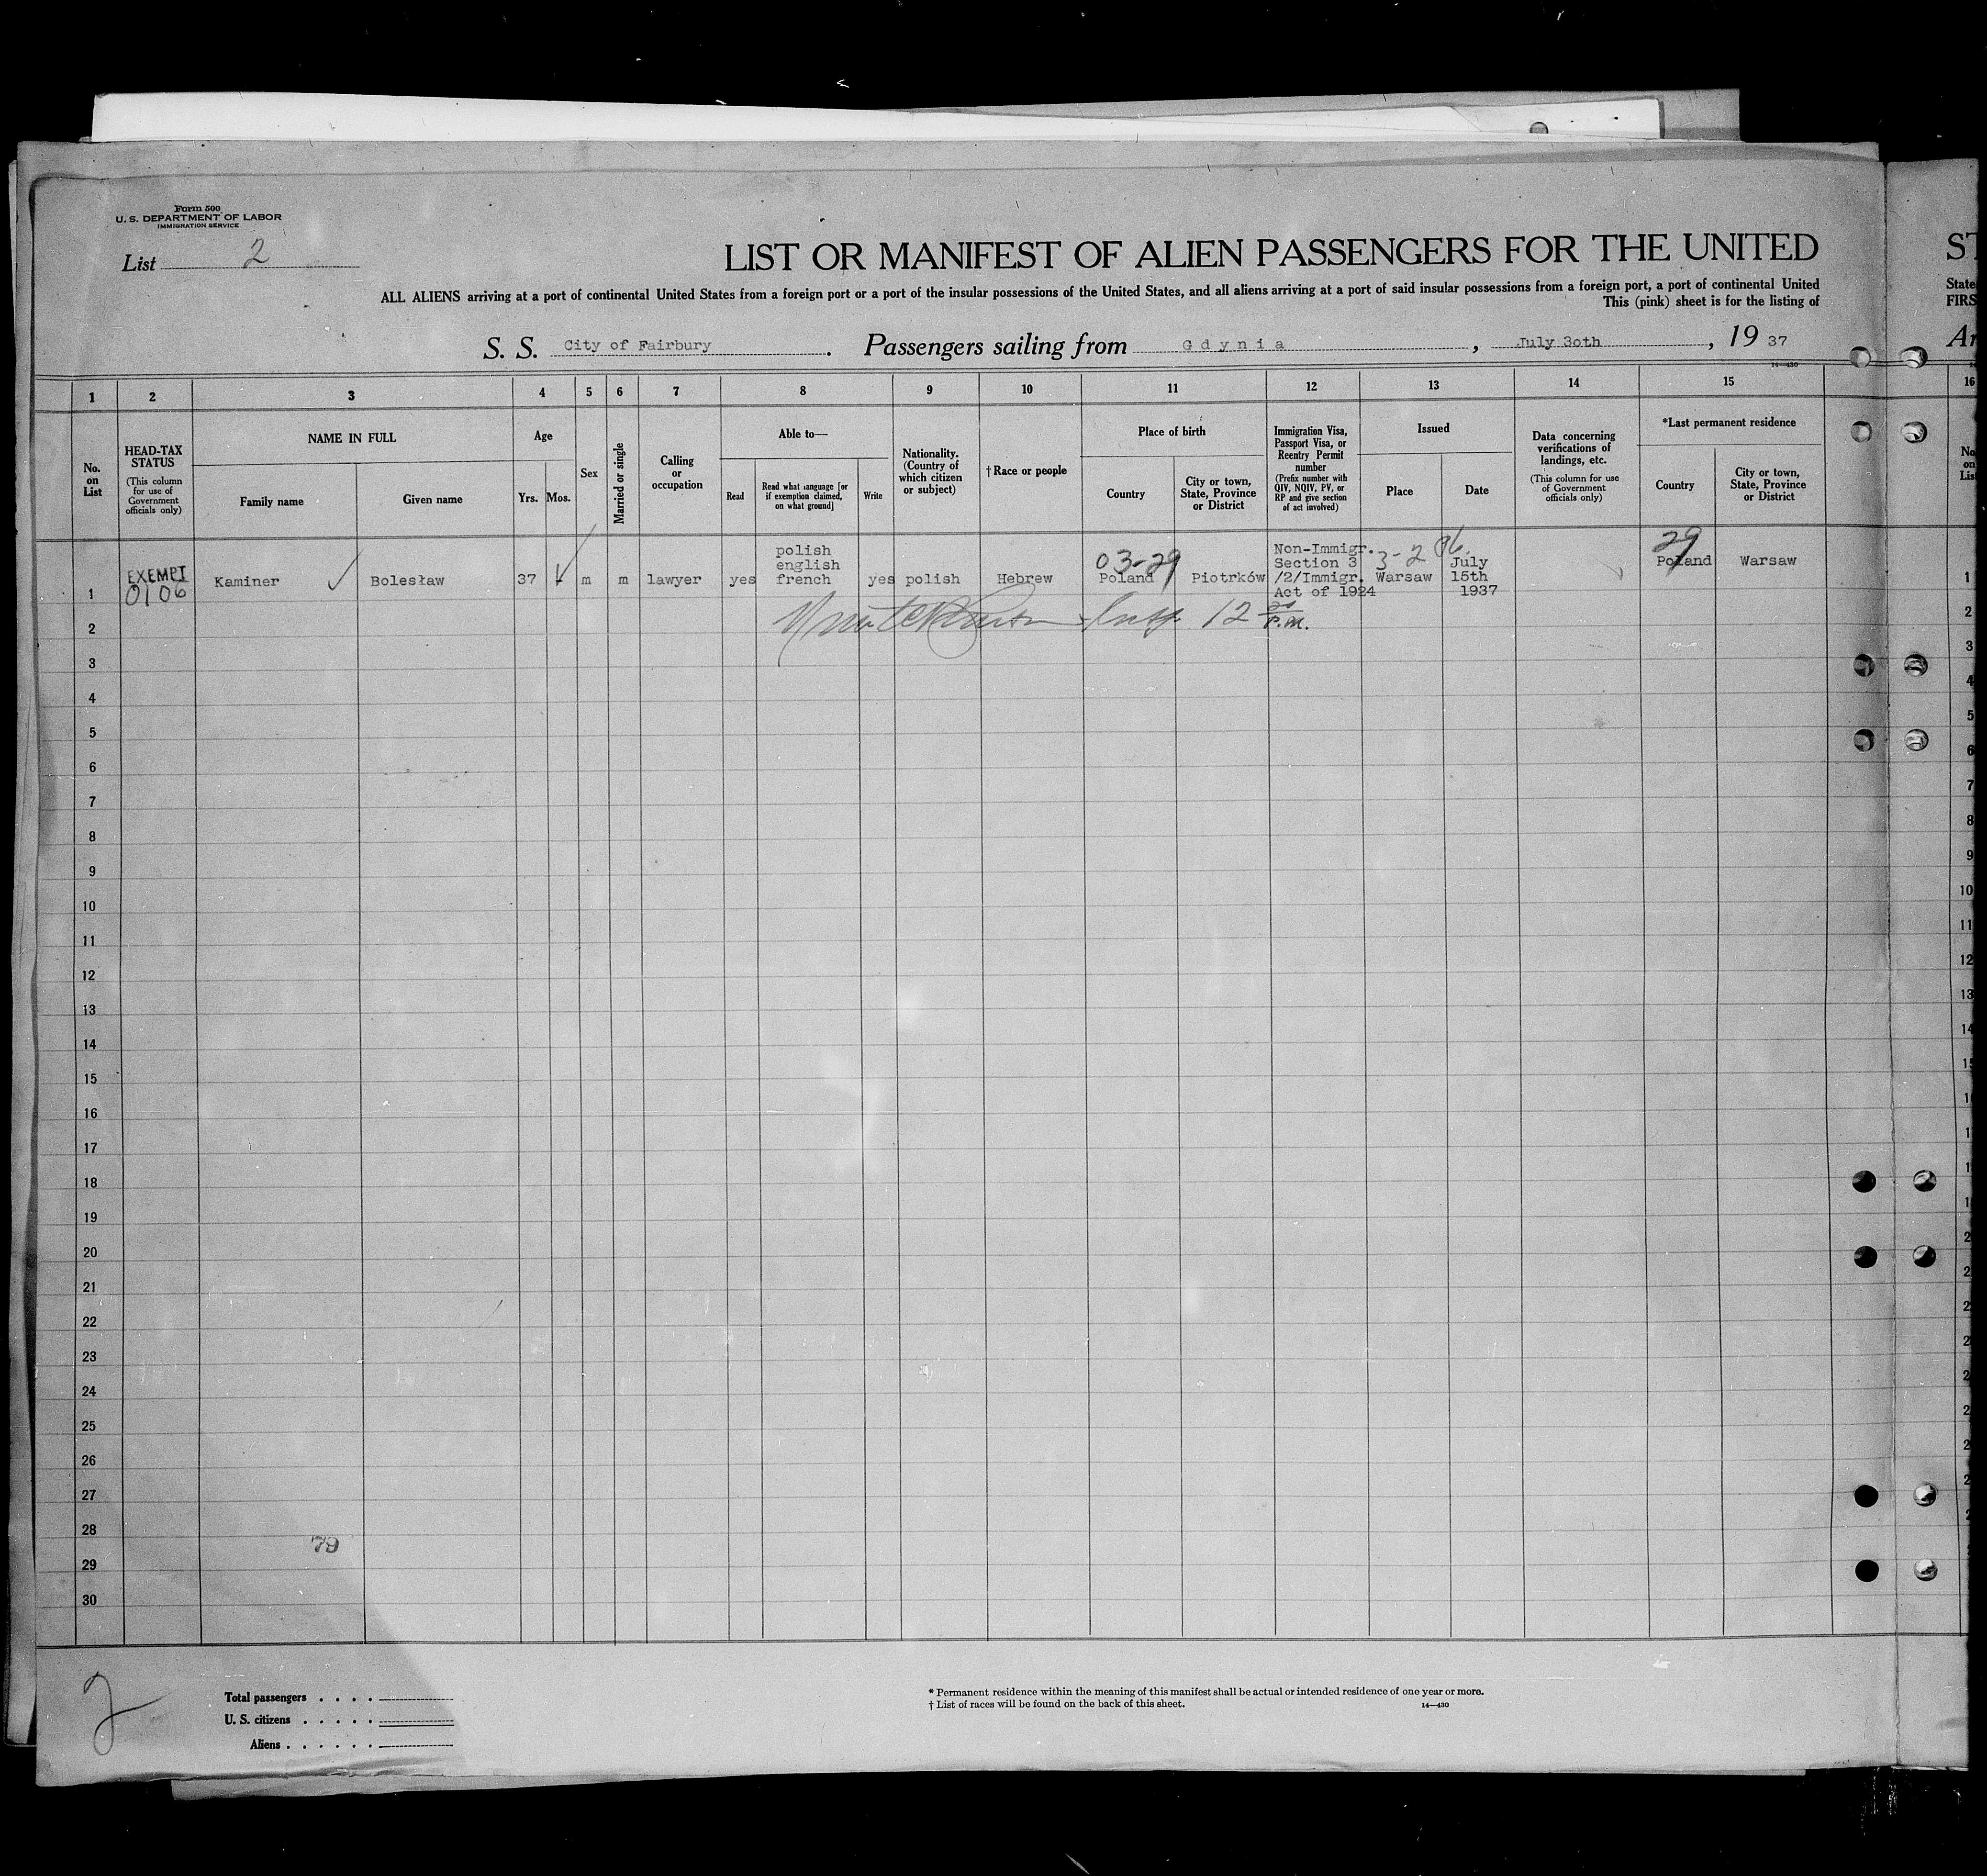 Form 500
U. S. DEPARTMENT OF LABOR
IMMIGRATION SERVICE
List 2
LIST OR MANIFEST OF ALIEN PASSENGERS FOR THE UNITED
ST
ALL ALIENS arriving at a port of continental United States from a foreign port or a port of the insular possessions of the United States, and all aliens arriving at a port of said insular possessions from a foreign port, a port of continental United
State
This (pink) sheet is for the listing of
FIRS
S. S. City of Fairbury. Passengers sailing from Gdynia, July 3oth, 19 37
Ar
14—430
1 2 3 4 5 6 7 8 9 10 11 12 13 14 15 16
No. on List
HEAD-TAX STATUS
(This column for use of Government officials only)
NAME IN FULL
Family name
Given name
Age
Yrs. Mos.
Sex
Married or single
Calling or occupation
Able to—
Read
Read what language [or if exemption claimed, on what ground]
Write
Nationality. (Country of which citizen or subject)
† Race or people
Place of birth
Country
City or town, State, Province or District
Immigration Visa, Passport Visa, or Reentry Permit number
(Prefix number with QIV, NQIV, PV, or RP and give section of act involved)
Issued
Place
Date
Data concerning verifications of landings, etc.
(This column for use of Government officials only)
*Last permanent residence
Country
City or town, State, Province or District
No on List
polish
english
french
03-29
Non-Immigr.
Section 3
/2/Immigr.
Act of 1924
3-2
July
15th
1937
29
1 EXEMPT 0106 Kaminer Bolesław 37 m m lawyer yes yes polish Hebrew Poland Piotrków Warsaw Poland Warsaw 1
12 P.M.
2
3
4
5
6
7
8
9
10
11
12
13
14
15
16
17
18
19
20
21
22
23
24
25
26
27
28
79
29
30
2
Total passengers . . . .
U. S. citizens . . . . .
Aliens . . . . . .
* Permanent residence within the meaning of this manifest shall be actual or intended residence of one year or more.
† List of races will be found on the back of this sheet.
14—430